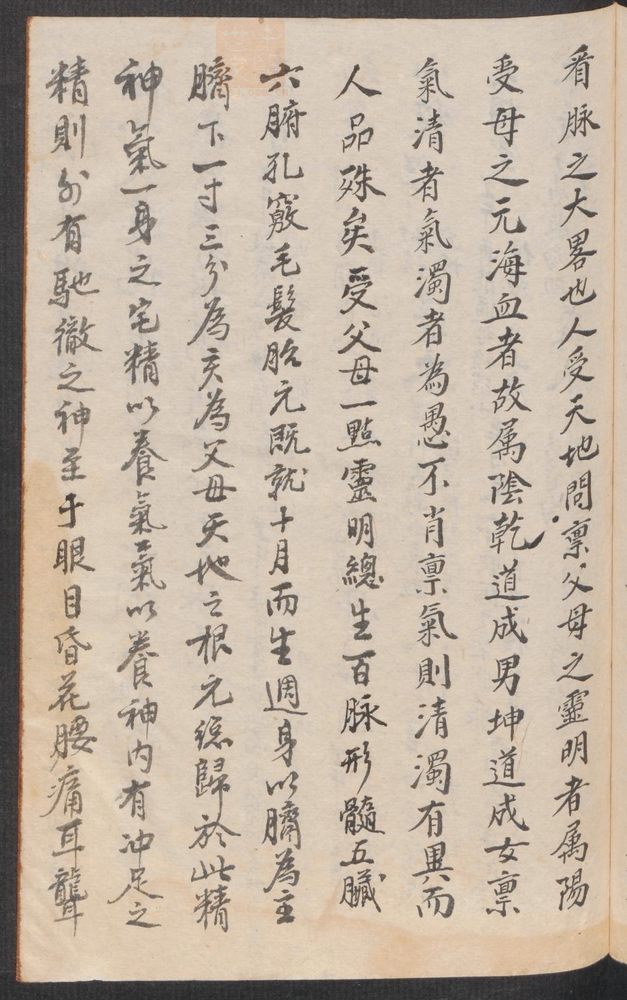 看脉之大畧也人受天地問禀父母之靈明者属陽
受母之元海血者故属陰乾道成男坤道成女禀
氣清者氣濁者為愚不肖禀氣則清濁有異而
人品殊矣受父母一點靈明總生百脉形髓五臟
六腑孔竅毛髮胎元既就十月而生週身以臍為主
臍下一寸三分為亥為父母天地之根元總歸於此精
神氣一身之宅精以養氣〻氣以養神内有冲足之
精則外有馳徹之神至于眼目昏花腰痛耳聾